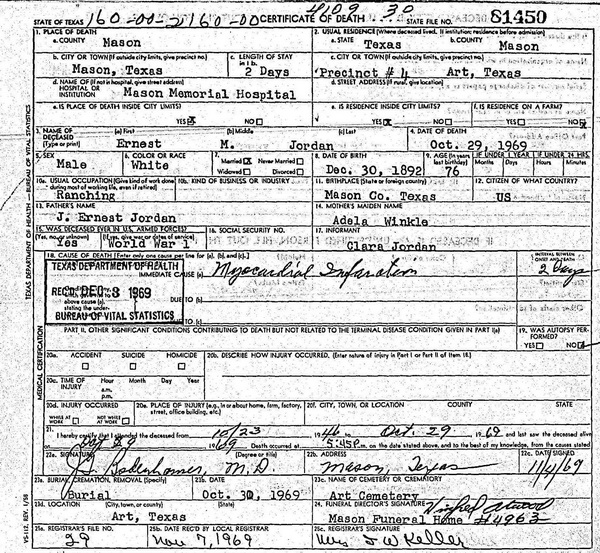 STATE OF TEXAS 160-00-2160-00 CERTIFICATE OF DEATH 4109 30 STATE FILE NO. 81450
1. PLACE OF DEATH
a. COUNTY Mason
2. USUAL RESIDENCE (Where deceased lived. If institution: residence before admission)
a. STATE Texas b. COUNTY Mason
b. CITY OR TOWN (If outside city limits, give precinct no.) Mason, Texas
c. LENGTH OF STAY in 1 b. 2 Days
c. CITY OR TOWN (If outside city limits, give precinct no.) Precinct # 4 Art, Texas
d. NAME OF (If not in hospital, give street address) HOSPITAL OR INSTITUTION Mason Memorial Hospital
d. STREET ADDRESS (If rural, give location)
e. IS PLACE OF DEATH INSIDE CITY LIMITS? YES NO
e. IS RESIDENCE INSIDE CITY LIMITS? YES NO
f. IS RESIDENCE ON A FARM? YES NO
3. NAME OF DECEASED (Type or print)
(a) First Ernest (b) Middle M. (c) Last Jordan
4. DATE OF DEATH Oct. 29, 1969
5. SEX Male
6. COLOR OR RACE White
7. Married Never Married Widowed Divorced
8. DATE OF BIRTH Dec. 30, 1892
9. AGE (In years last birthday) 76
IF UNDER 1 YEAR Months Days
IF UNDER 24 HRS. Hours Minutes
10a. USUAL OCCUPATION (Give kind of work done during most of working life, even if retired) Ranching
10b. KIND OF BUSINESS OR INDUSTRY
11. BIRTHPLACE (State or foreign country) Mason Co. Texas
12. CITIZEN OF WHAT COUNTRY? US
13. FATHER'S NAME J. Ernest Jordan
14. MOTHER'S MAIDEN NAME Adela Winkle
15. WAS DECEASED EVER IN U.S. ARMED FORCES? (Yes, no, or unknown) (If yes, give war or dates of service) Yes World War 1
16. SOCIAL SECURITY NO.
17. INFORMANT Clara Jordan
18. CAUSE OF DEATH [Enter only one cause per line for (a), (b), and (c).]
INTERVAL BETWEEN ONSET AND DEATH
IMMEDIATE CAUSE (a) Myocardial Infarction 2 Days
TEXAS DEPARTMENT OF HEALTH
REC'D DEC 3 1969
BUREAU OF VITAL STATISTICS
above cause (a), stating the under-
DUE TO (b)
DUE TO (c)
PART II. OTHER SIGNIFICANT CONDITIONS CONTRIBUTING TO DEATH BUT NOT RELATED TO THE TERMINAL DISEASE CONDITION GIVEN IN PART I(a)
19. WAS AUTOPSY PERFORMED? YES NO
20a. ACCIDENT SUICIDE HOMICIDE
20b. DESCRIBE HOW INJURY OCCURRED. (Enter nature of injury in Part I or Part II of item 18.)
20c. TIME OF INJURY Hour a.m. p.m. Month Day Year
20d. INJURY OCCURRED WHILE AT WORK NOT WHILE AT WORK
20e. PLACE OF INJURY (e.g., in or about home, farm, factory, street, office building, etc.)
20f. CITY, TOWN, OR LOCATION COUNTY STATE
21. I hereby certify that I attended the deceased from 10/23 1946 to Oct. 29 1969 and last saw the deceased alive
on Oct 29 1969 Death occurred at 5:45P m. on the date stated above, and to the best of my knowledge, from the causes stated
22a. SIGNATURE (Degree or title) J. J. Bodenhamer, M.D.
22b. ADDRESS Mason, Texas
22c. DATE SIGNED 11/4/69
23a. BURIAL, CREMATION, REMOVAL (Specify) Burial
23b. DATE Oct. 30, 1969
23c. NAME OF CEMETERY OR CREMATORY Art Cemetery
23d. LOCATION (City, town, or county) (State) Art, Texas
24. FUNERAL DIRECTOR'S SIGNATURE
Mason Funeral Home #4963
25a. REGISTRAR'S FILE NO. 29
25b. DATE REC'D BY LOCAL REGISTRAR Nov 7, 1969
25c. REGISTRAR'S SIGNATURE Mrs J W Keller
TEXAS DEPARTMENT OF HEALTH — BUREAU OF VITAL STATISTICS
MEDICAL CERTIFICATION
VS-112, REV. 1/58